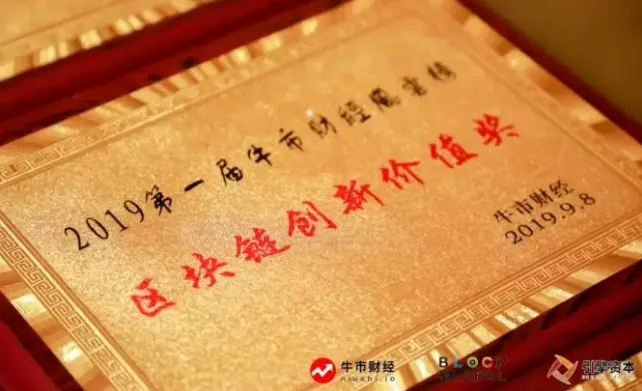 2019第一届牛市财经风云榜
区块链创新价值奖
牛市财经
2019.9.8
牛市财经
niushi.io
BLOCK
GLOBAL
引擎资本